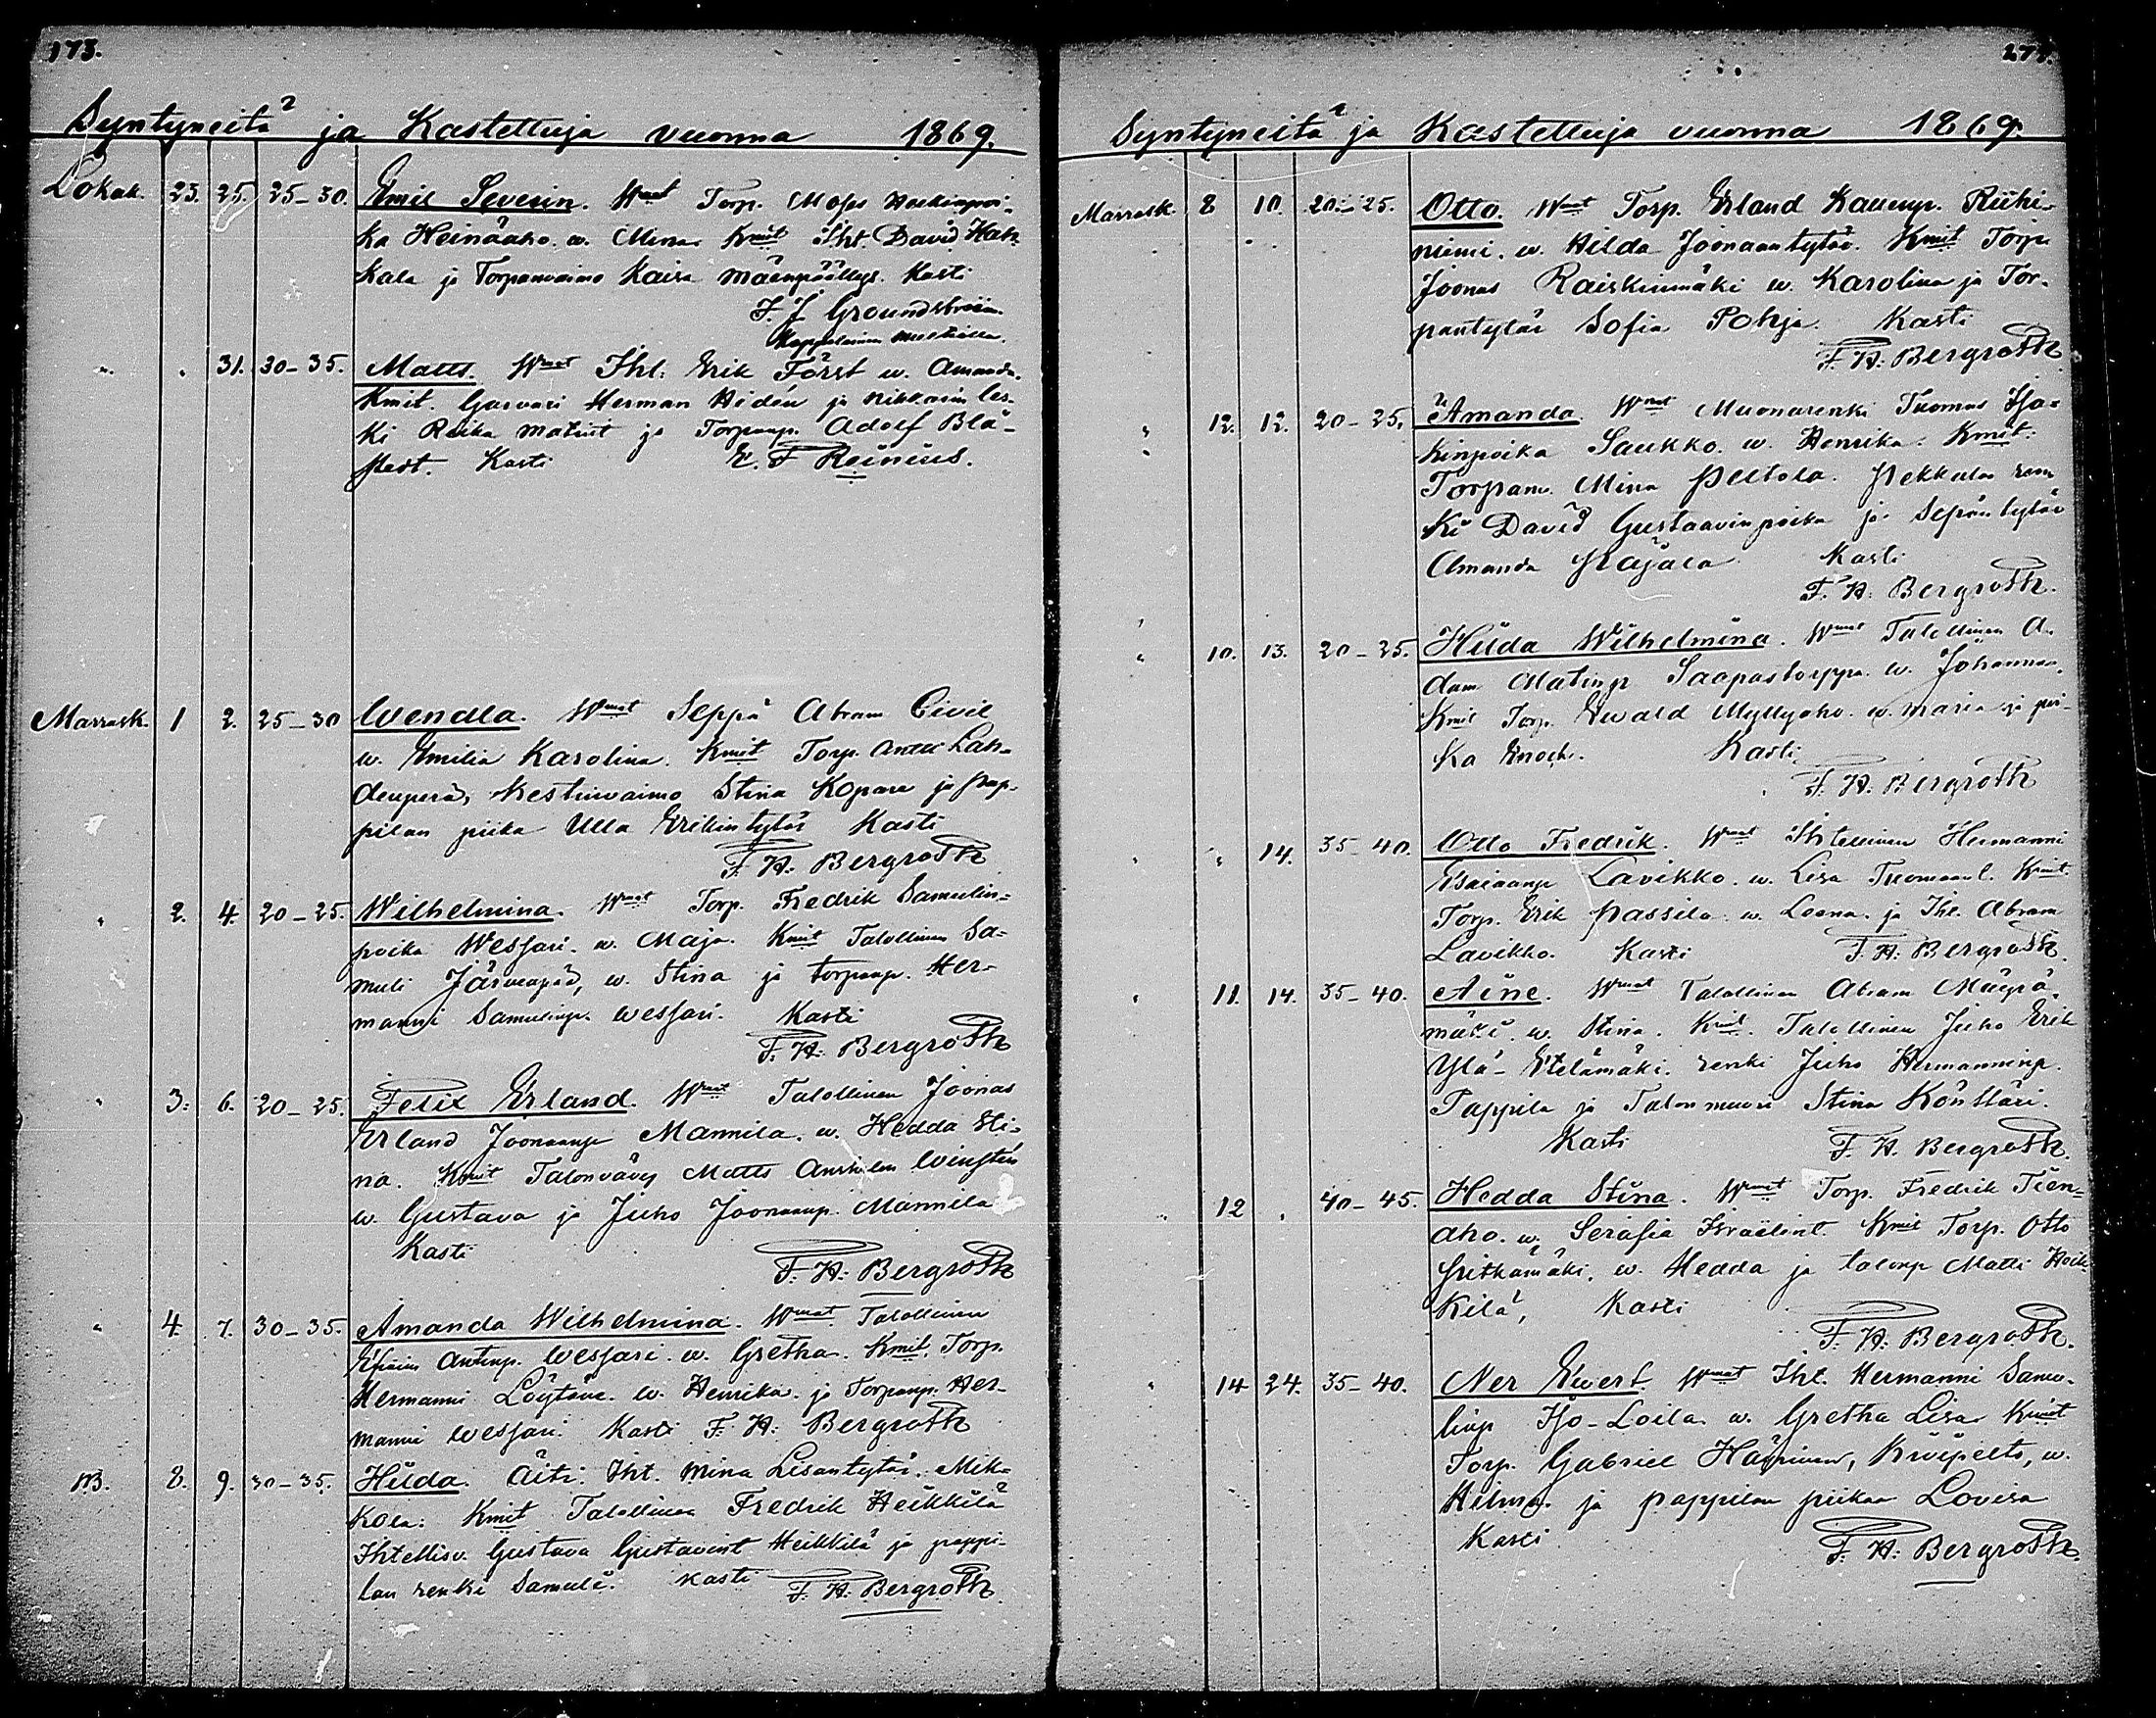 173.
Syntyneitä ja Kastettuja vuonna 1869.
Lokak. 23. 25. 25-30. Emil Severin. Wmat Torp. Mops Heikinpoi-
ka Heinäaho w. Mina. Kmit Iht. David Hak-
kala ja Torpanvaimo Kaisa Mäenpäällys. Kasti
F. J. Groundström
Kappalainen
" . 31. 30-35. Matts. Wmat Iht. Erik Först w. Amanda.
Kmit. Garvari Herman Hidén ja nikkarin les-
ki Reika Matint ja Torpanp. Adolf Blä-
stedt. Kasti E. F. Reinius.
Marrask. 1 2. 25-30 Wendla. Wmat Seppä Abram Civil
w. Emilia Karolina. Kmit Torp. Antti Lah-
denperä, Kestinvaimo Stina Kopare ja pap-
pilan piika Ulla Erikintytär Kasti
F. H. Bergroth
" 2. 4. 20-25. Wilhelmina. Wmat Torp. Fredrik Samulin-
poika Wessari. w. Maja. Kmit Talollinen Sa-
muli Järvenpää, w. Stina ja torpanp. Her-
manni Samulinp. Wessari. Kasti
F. H. Bergroth
" 3. 6. 20-25. Felix Erland. Wmat Talollinen Joonas
Erland Joonaanp Mannila. w. Hedda Sti-
na. Kmit Talonvävy Matts Wingstén
w. Gustava ja Juho Joonaanp. Mannila
Kasti
F. H. Bergroth
" 4. 7. 30-35. Amanda Wilhelmina. Wmat Talollinen
Efraim Antinp. Wessari. w. Gretha. Kmit. Torp.
Hermanni Löytäne. w. Henrika. ja Torpanp. Her-
manni Wessari. Kasti F. H. Bergroth
8. 9. 30-35. Hilda. Äiti. Iht. Mina Lisantytär. Mik-
kola. Kmit Talollinen Fredrik Heikkilä
Ihtellisv. Gustava Gustavint Heikkilä ja pappi-
lan renki Samuli. Kasti F. H. Bergroth
274.
Syntyneitä ja Kastettuja vuonna 1869.
Marrask. 8 10. 20-25. Otto. Wmat Torp. Erland Riihi-
niemi. w. Hilda Joonaantytär. Kmit Torp.
Joonas Raiskinmäki w. Karolina ja Tor-
pantytär Sofia Pohja. Kasti
F. H. Bergroth
" 12. 12. 20-25. Amanda. Wmat Muonarenki Tuomas Isa-
kinpoika Saukko. w. Henrika. Kmit.
Torpanv. Mina Peltola. Pekkalan ren
ki David Gustaavinpoika ja Sepän tytär
Amanda Rajala Kasti
F. H. Bergroth.
" 10. 13. 20-25. Hilda Wilhelmina. Wmat Talollinen A-
dam Matinp Saapastorppa. w. Johanna.
Kmit Torp. Ewald Myllyaho. w. Maria ja poi-
ka Enoch. Kasti
F. H. Bergroth
" " 14. 35-40. Otto Fredrik. Wmat Ihtellinen Hermanni
Esaiaanp Lavikko. w. Lisa Tuomaant. Kmit.
Torp. Erik Passila. w. Leena. ja Iht. Abram
Lavikko. Kasti F. H. Bergroth.
" 11. 14. 35-40. Aine. Wmat Talollinen Abram Mäyrä-
mäki. w. Stina. Kmit. Talollinen Juho Erik
Ylä-Etelämäki. renki Juho Hermanninp.
Pappila ja Talon muori Stina Könttäri.
Kasti F. H. Bergroth.
" 12 . 40-45. Hedda Stina. Wmat Torp. Fredrik Tien-
aho. w. Serafia Israelint. Kmit Torp. Otto
Pitkämäki, w. Hedda ja talonp Matti Heik-
kilä, Kasti
F. H. Bergroth.
" 14 24. 35-40. Ner Ewert. Wmat Iht. Hermanni Samu-
linp Iso-Loila w. Gretha Lisa Kmit
Torp. Gabriel Härpinen, w.
Hilma ja pappilan piikaa Lovisa
Kasti F. H. Bergroth.